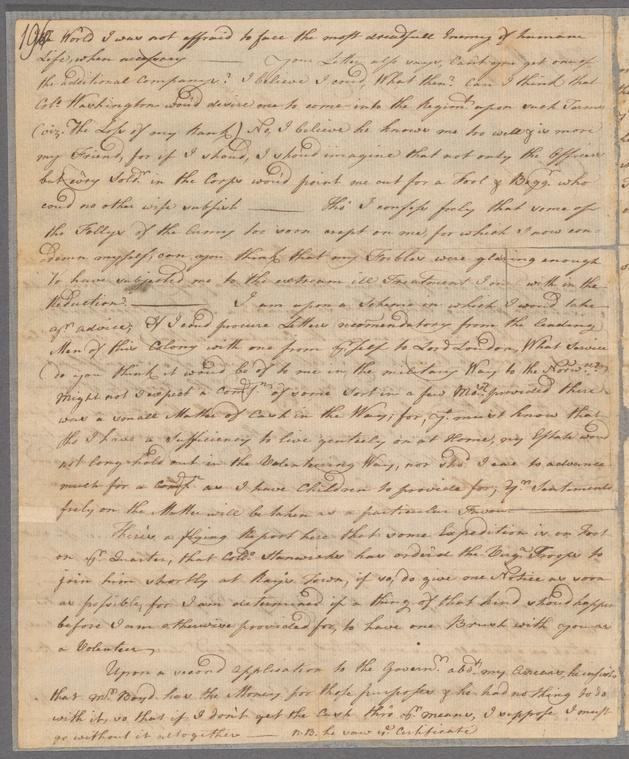 196
World I was not affraid to face the most dreadfull Enemy of humane
Life, when necessary — your Letter also says, Can't you get one of
the additional Companys? I believe I coud, What then? Can I think that
Colo Washington woud desire me to come into the Regimt upon such Terms
(viz. The Loss of my Rank) No, I believe he knows me too well & is more
my Friend, for if I shoud, I shoud imagine that not only the Officers
but every Soldr in the Corps woud point me out for a Fool & Beggr who
coud no other wise subsist — Tho' I confess freely that some of
the Follys of the Army too soon crept on me, for which I now con-
demn myself, can you think that my Foibles were glaring enough
to have subjected me to the extream ill Treatment I met with in the
Reduction. — I am upon a Scheme in which I woud take
yr advice; If I coud procure Letters recomendatory from the leading
Men of this Colony with one from yrself to Lord Loudon, What Service
do you think it would be of to me in the military Way to the Norwd
might not I expect a Comsn of some sort in a few Mos provided there
was a small Matter of Cash in the Way; for, yo must know that
tho I have a sufficiency to live genteely on at Home, my Estate woud
not long hold out in the Volunteering Way, nor shd I care to advance
much for a Comsn as I have Children to provide for; Yr Sentiments
freely on the Matter will be taken as a particular Favour —
There's a flying Report here that some Expedition is on Foot
on yr Quarter, that Colo Stanwicks has ordered the Virga Troops to
join him shortly at Rays Town, if so, do give me Notice as soon
as possible, for I am determined if a thing of that kind should happen
before I am otherwise provided for, to have one Brush with you as
a Volunteer
Upon a second application to the Governr abt my Arrears, he insists
that Mr Boyd has the Money for those purposes & he had nothing to do
with it, so that if I don't get the Cash thro' yr means, I suppose I must
go without it altogether — N.B. he saw yr Certificate